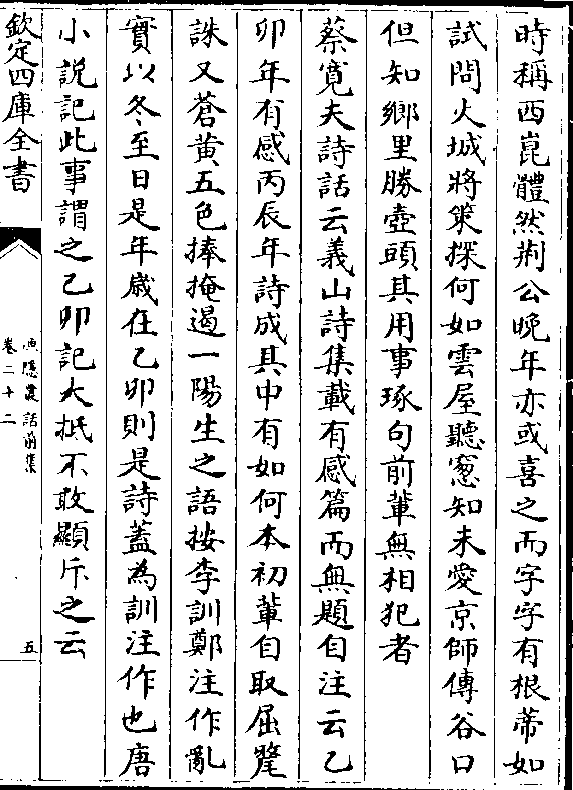 時稱西崑體然荆公晚年亦或喜之而字字有根蒂如
試問火城將策探何如雲屋聽窻知未愛京師傳谷口
但知鄉里勝壺頭其用事琢句前輩無相犯者
蔡寛夫詩話云義山詩集載有感篇而無題自注云乙
卯年有感丙辰年詩成其中有如何本初輩自取屈氂
誅又蒼黄五色捧掩遏一陽生之語按李訓鄭注作亂
實以冬至日是年歲在乙卯則是詩蓋為訓注作也唐
小説記此事謂之乙卯記大抵不敢顯斥之云
欽定四庫全書
漁隱叢話前集
卷二十二
五